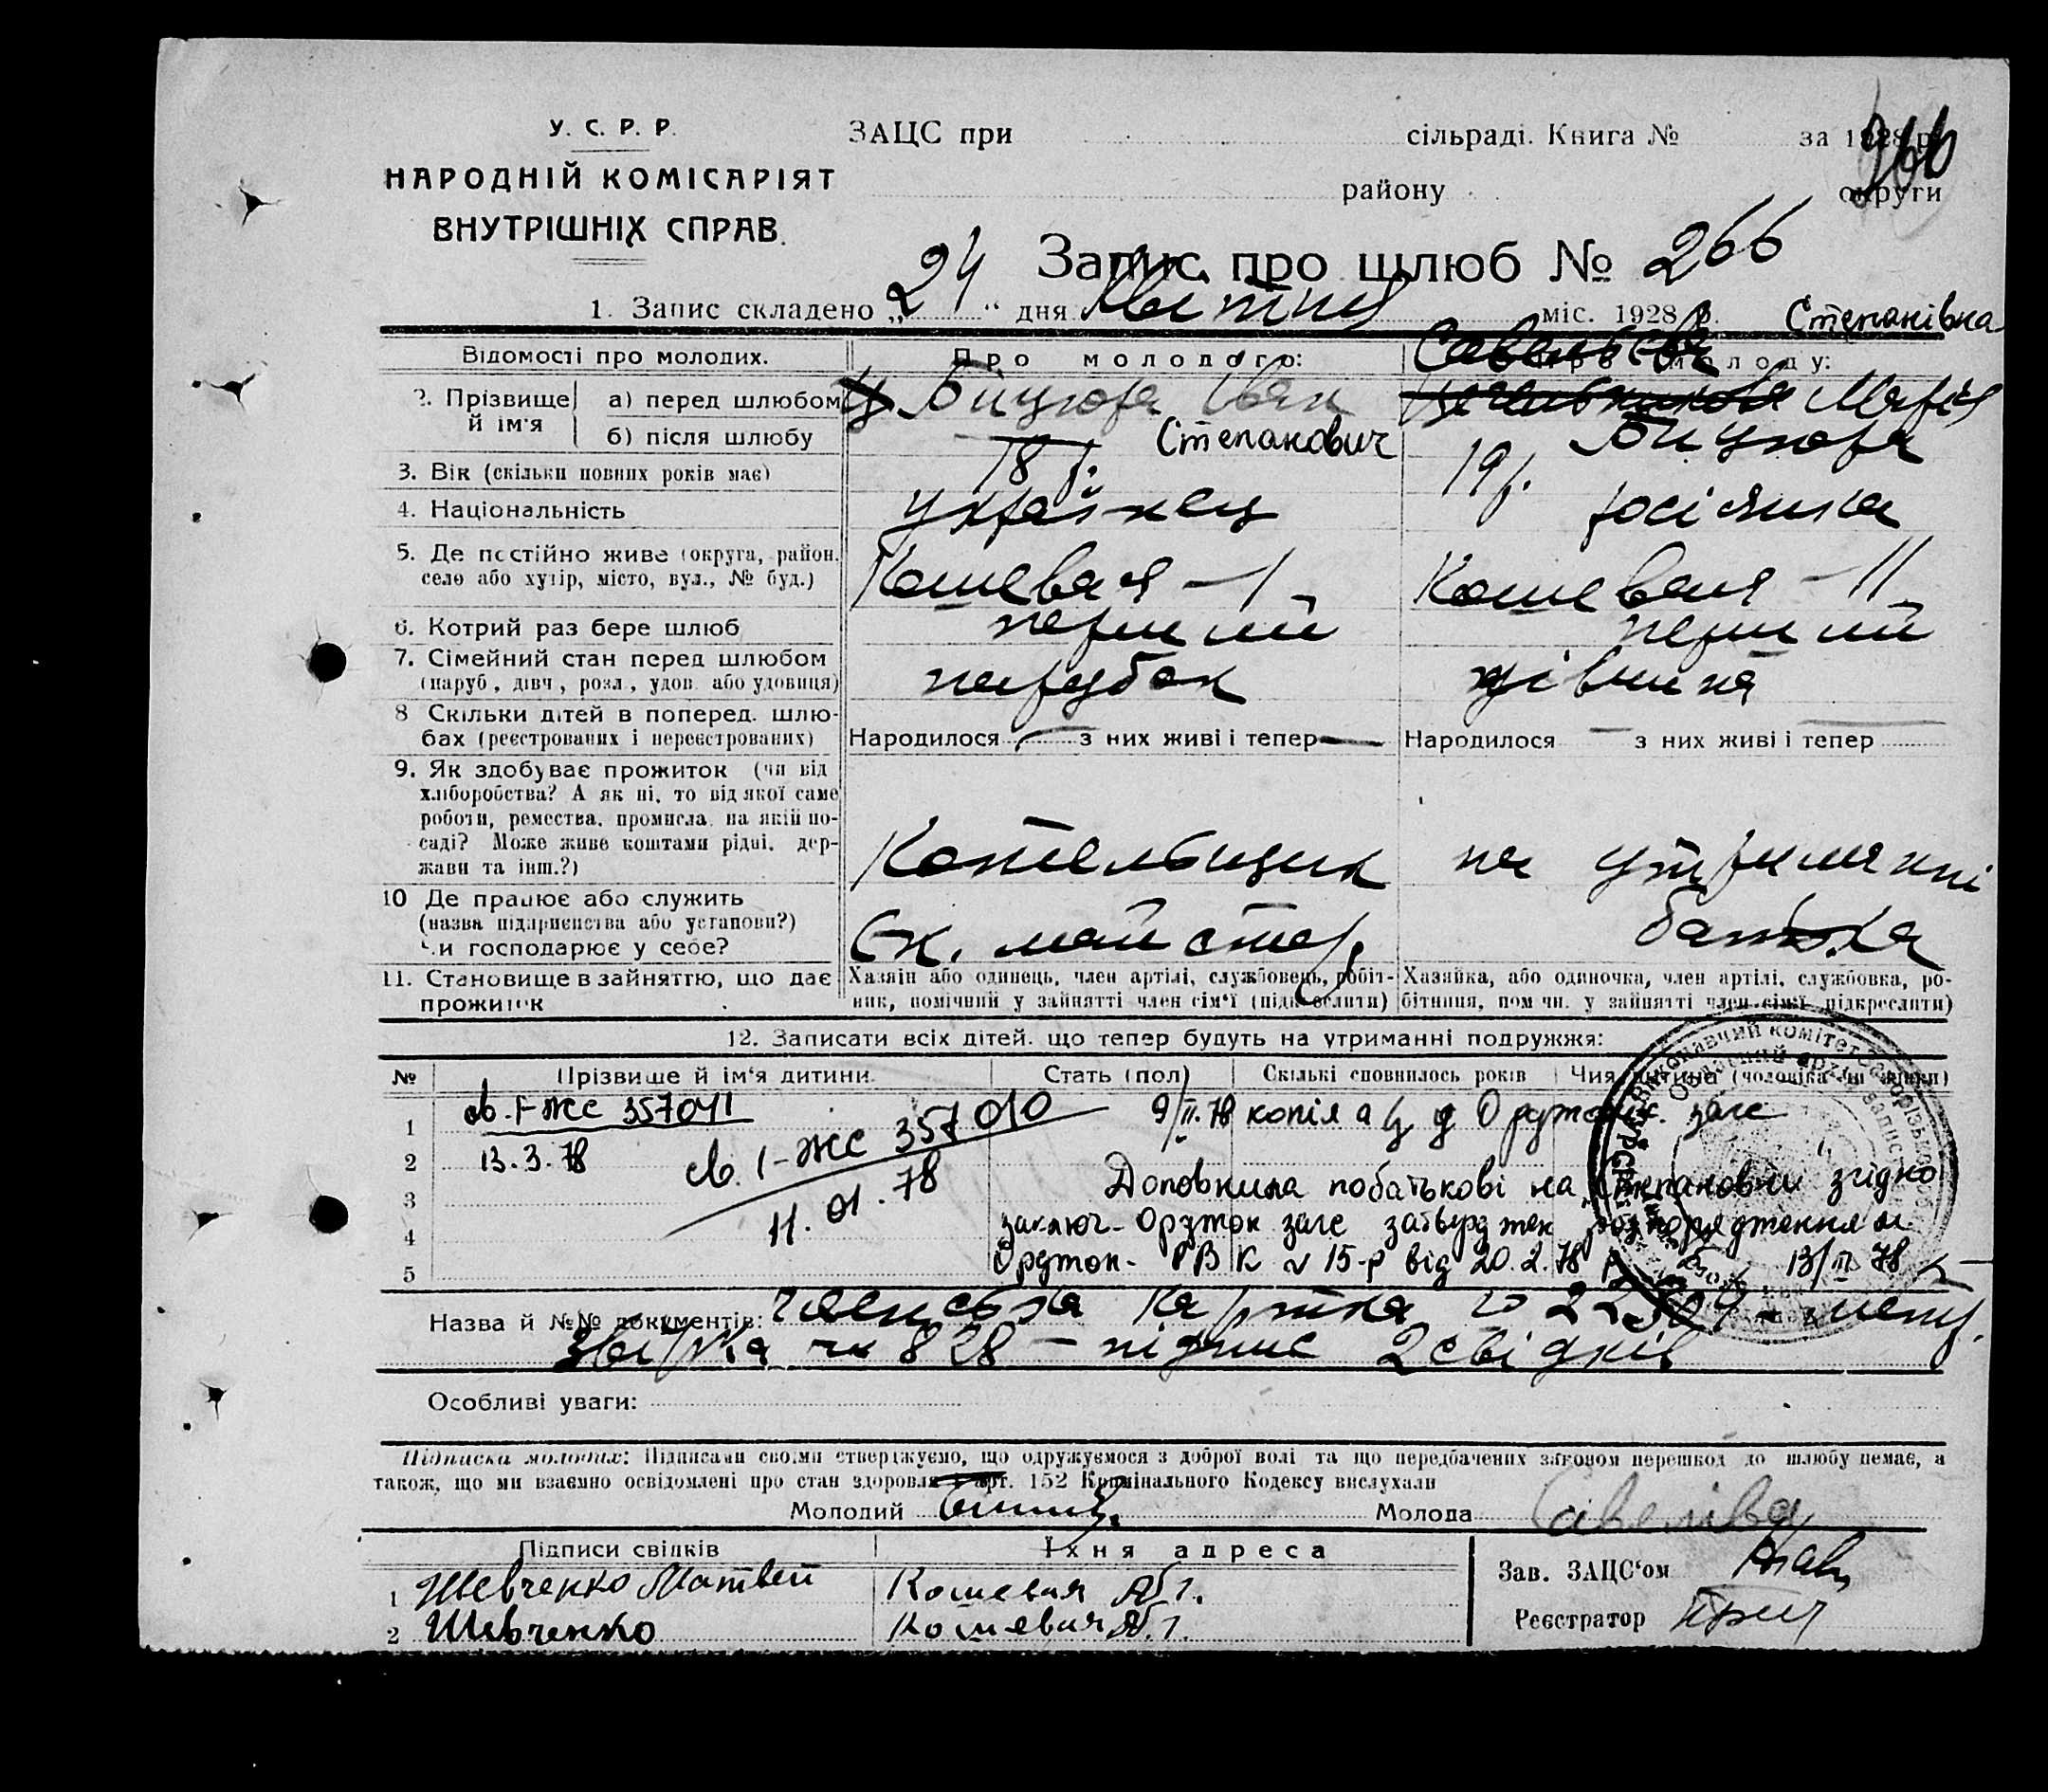 У. С. Р. Р.
НАРОДНІЙ КОМІСАРІЯТ
ВНУТРІШНІХ СПРАВ.
ЗАЦС при сільраді. Книга № за 1928 р.
району округи
266
Запис про шлюб № 266
1. Запис складено „24“ дня міс. 1928 р.
Степанівна
Відомості про молодих. Про молодого: Про молоду:
2. Прізвище й ім'я
а) перед шлюбом Бицюра Іван Марія
б) після шлюбу Степанович Бицюра
3. Вік (скільки повних років має) 18 р. 19 р.
4. Національність українец росіянка
5. Де постійно живе (округа, район, село або хутір, місто, вул., № буд.) Кошевая – 1 Кошевая – 11
6. Котрий раз бере шлюб перший перший
7. Сімейний стан перед шлюбом (паруб., дівч., розл., удов. або удовиця) парубок дівчина
8 Скільки дітей в поперед. шлюбах (реєстрованих і нереєстрованих) Народилося — з них живі і тепер — Народилося — з них живі і тепер
9. Як здобуває прожиток (чи від хліборобства? А як ні, то від якої саме роботи, ремества, промисла, на якій посаді? Може живе коштами рідні, держави та інш.?) Котельщик на утриманні
10 Де працює або служить (назва підприємства або установи?) Чи господарює у себе? Ск. майстер. батька
11. Становище в зайняттю, що дає прожиток
Хазяін або одинець, член артілі, службовець, робітник, помічний у зайнятті член сім'ї (підкреслити)
Хазяйка, або одиночка, член артілі, службовка, робітниця, помічн. у зайнятті член сім'ї підкреслити)
12. Записати всіх дітей, що тепер будуть на утриманні подружжя:
№ Прізвище й ім'я дитини Стать (пол) Скількі сповнилось років Чия дитина (чоловіка чи жінки)
1 св. І-ЖС 357041
2 13.3.78
св. І-ЖС 357010
11.01.78
3
4
5
9/II.78 копія загс
Доповнила побатькові на „Степановни“ згідно
заключ. Орджон загс затверджен розпорядженням
Орджон. РВК № 15-р від 20.2.78 р. 13/III 78
Назва й №№ документів: членська картка
828 – підпис 2 свідків
Особливі уваги:
Підписка молодих: Підписами своїми стверджуємо, що одружуємося з доброї волі та що передбачених законом перешкод до шлюбу немає, а
також, що ми взаємно освідомлені про стан здоровля і арт. 152 Кримінального Кодексу вислухали
Молодий Молода Савеліва
Підписи свідків Їхня адреса
1 Шевченко Матвей Кошевая
2 Шевченко Кошевая
Зав. ЗАЦС'ом
Реєстратор